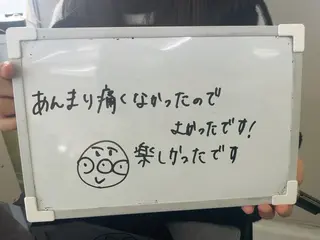 あんまり痛くなかったので
よかったです!
楽しかったです